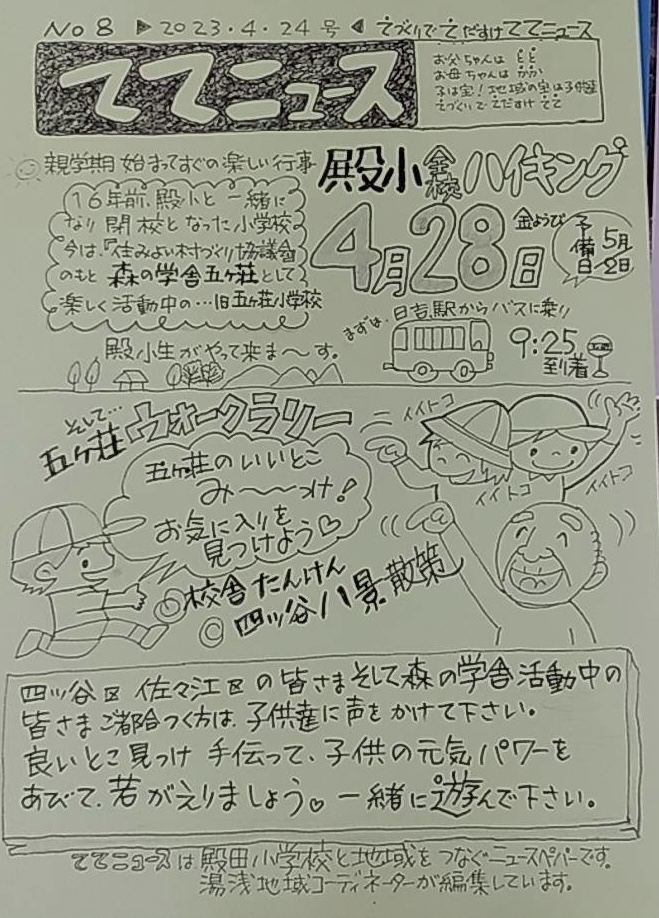 No 8 ▶ 2023・4・24号 ◀ てづくりで てだすけ ててニュース
ててニュース
お父ちゃんは とと
お母ちゃんは かか
子は宝！地域の宝は子供達
てづくりで てだすけ てて
親学期 始まってすぐの楽しい行事
殿小全校ハイキング
16年前、殿小と一緒に
なり閉校となった小学校
今は、『住みよい村づくり協議会』
のもと 森の学舎五ヶ荘として
楽しく活動中の…旧五ヶ荘小学校
4月28日
金ようび
予備日 5月2日
殿小生がやって来ま〜す。
まずは、日吉駅からバスに乗り
9:25到着
そして…
五ヶ荘ウォークラリー
五ヶ荘のいいとこ
み〜〜っけ！
お気に入りを
見つけよう♡
イイトコ
イイトコ
イイトコ
◎校舎たんけん
◎四ッ谷八景散策
四ッ谷区 佐々江区の皆さまそして森の学舎活動中の
皆さまご都合つく方は、子供達に声をかけて下さい。
良いとこ見つけ 手伝って、子供の元気パワーを
あびて、若がえりましょう♡ 一緒に遊んで下さい。
ててニュースは殿田小学校と地域をつなぐニュースペーパーです。
湯浅地域コーディネーターが編集しています。